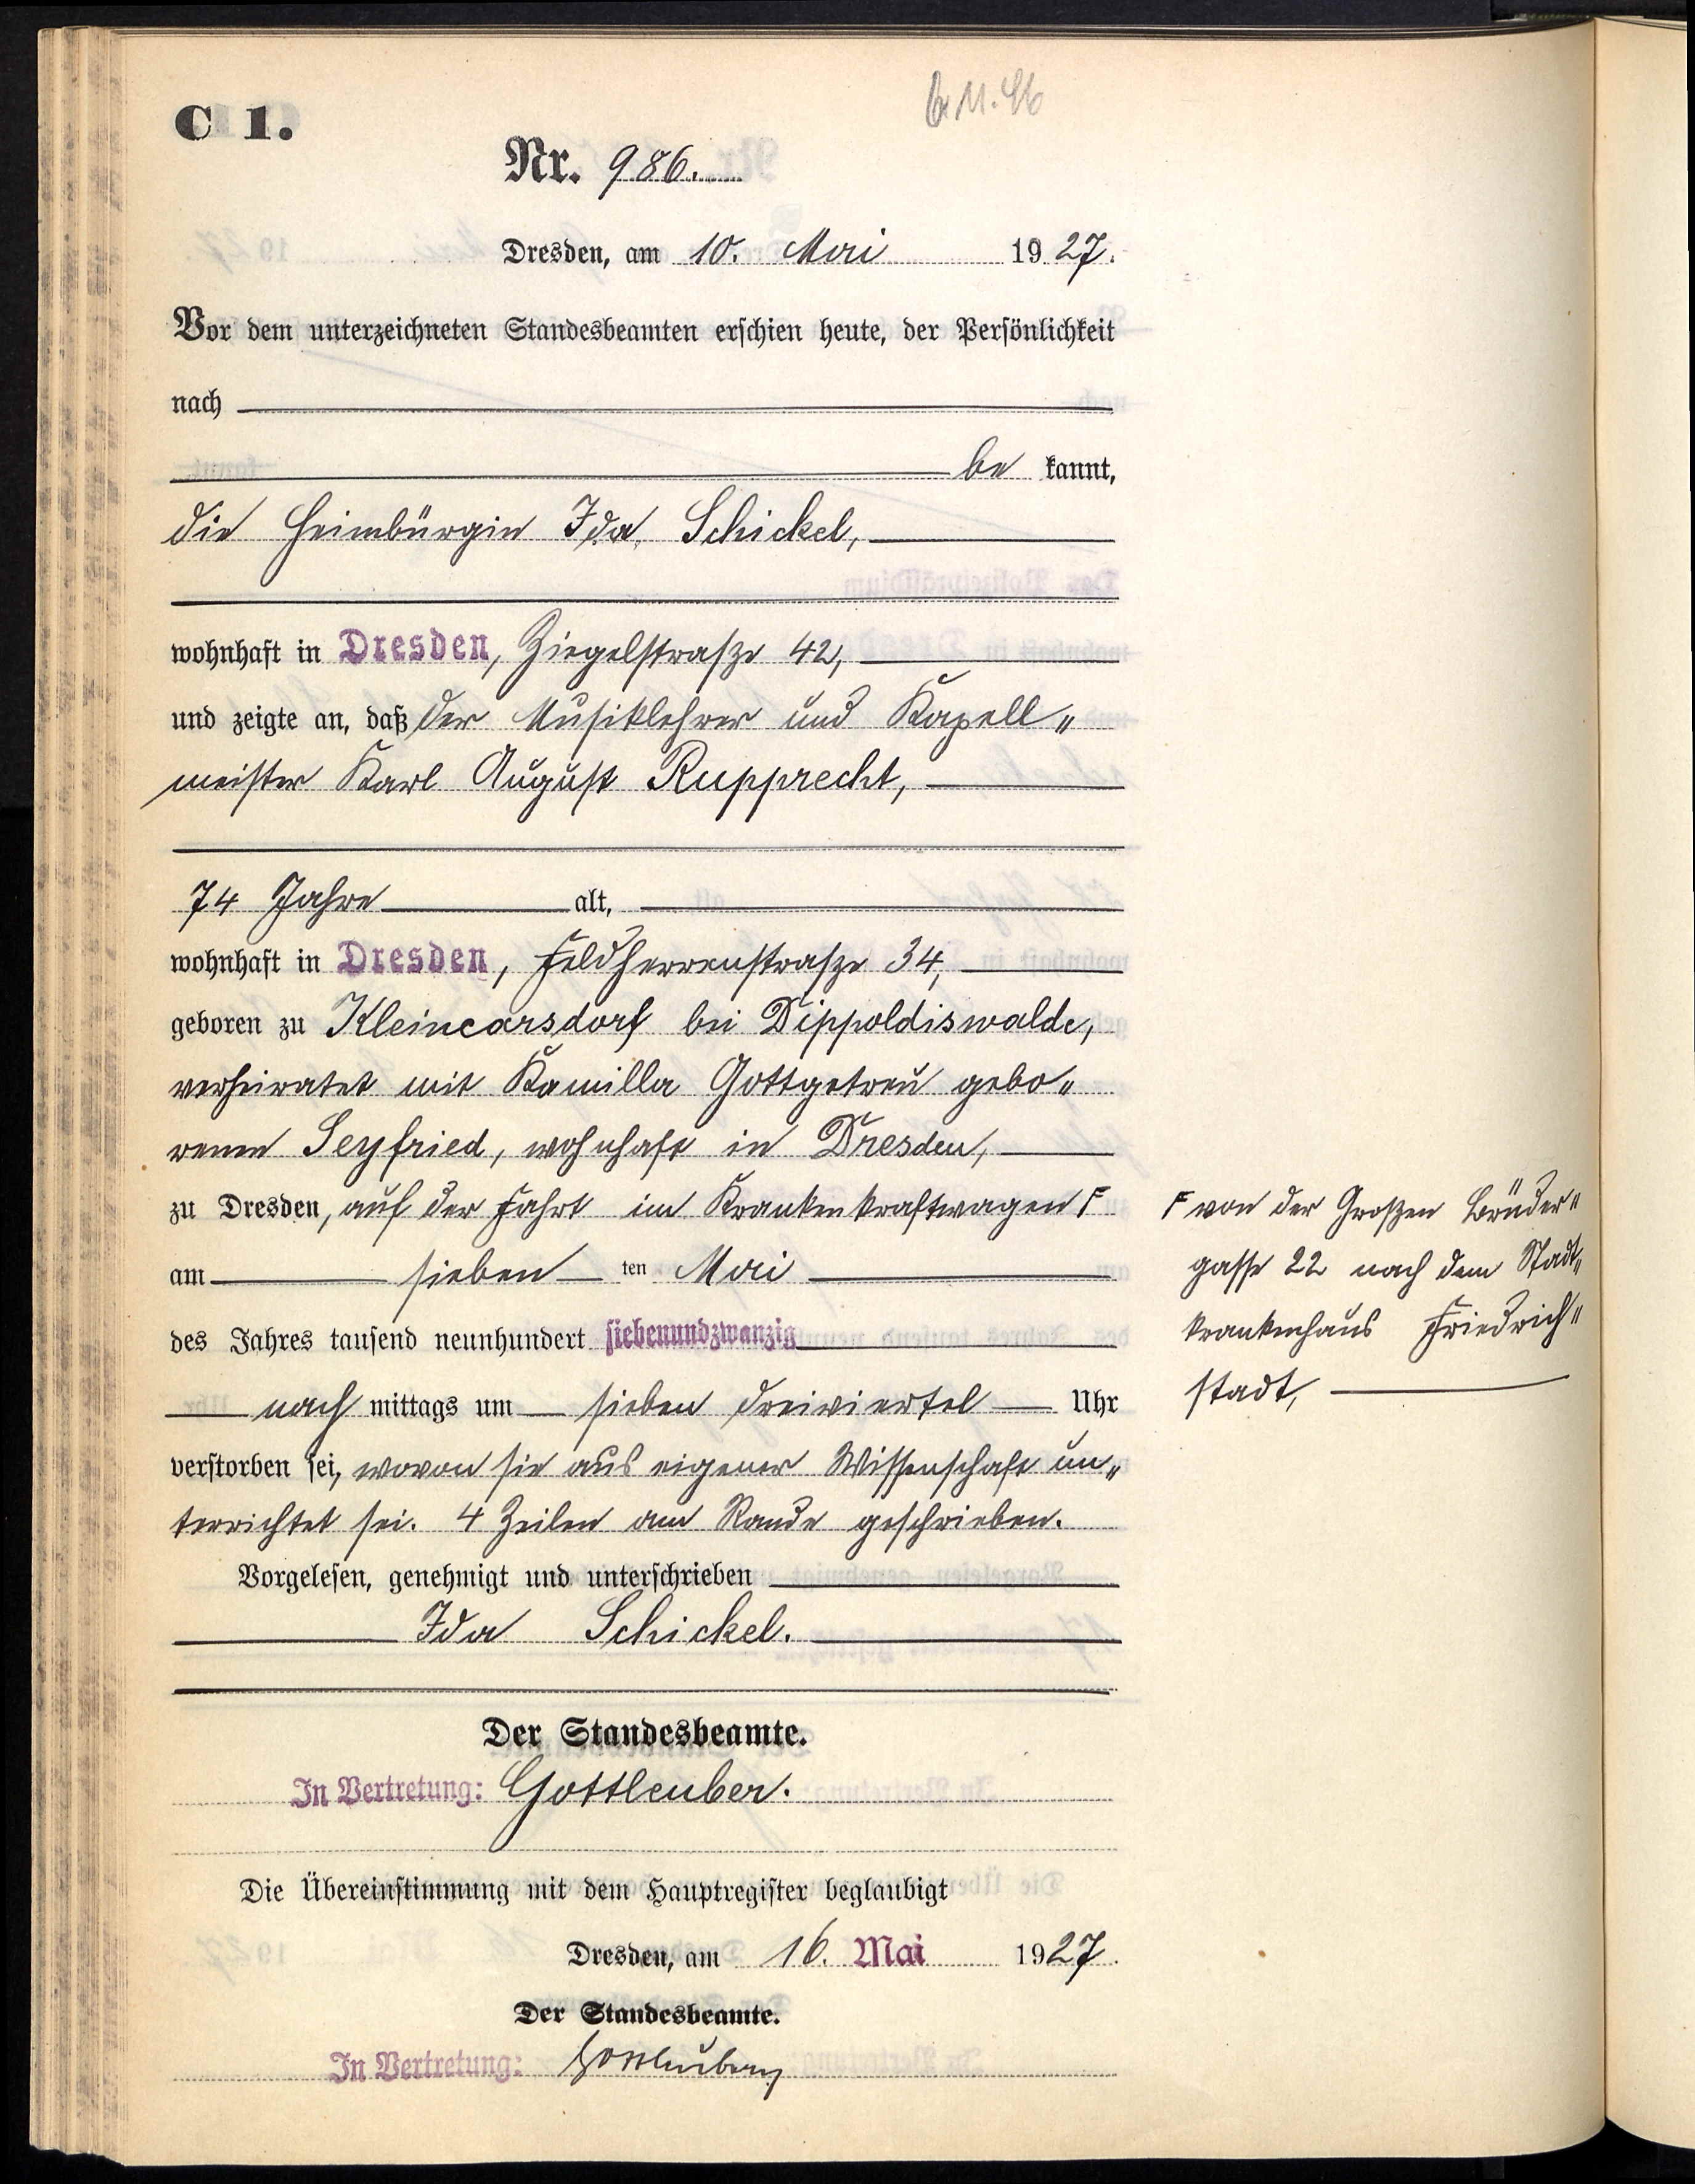 C 1.
Nr. 986.
Dresden, am 10. Mai 1927.
Vor dem unterzeichneten Standesbeamten erschien heute, der Persönlichkeit
nach
be kannt,
die Heimbürgin Ida Schickel,
wohnhaft in Dresden, Ziegelstraße 42,
und zeigte an, daß der Musiklehrer und Kapell„
meister Karl August Rupprecht,
74 Jahre alt,
wohnhaft in Dresden, Feldherrenstraße 34,
geboren zu Kleincarsdorf bei Dippoldiswalde,
verheiratet mit Kamilla Gottgetreu gebo„
renen Seyfried, wohnhaft in Dresden,
zu Dresden, auf der Fahrt im Krankenkraftwagen F
F von der Großen Brüder„
gasse 22 nach dem Stadt„
krankenhaus Friedrich„
stadt,
am sieben ten Mai
des Jahres tausend neunhundert siebenundzwanzig
nach mittags um sieben dreiviertel Uhr
verstorben sei, wovon sie aus eigener Wissenschaft un„
terrichtet sei. 4 Zeilen am Rande geschrieben.
Vorgelesen, genehmigt und unterschrieben
Ida Schickel.
Der Standesbeamte.
In Vertretung: Gottleuber.
Die Übereinstimmung mit dem Hauptregister beglaubigt
Dresden, am 16. Mai 1927.
Der Standesbeamte.
In Vertretung: Gottleuber